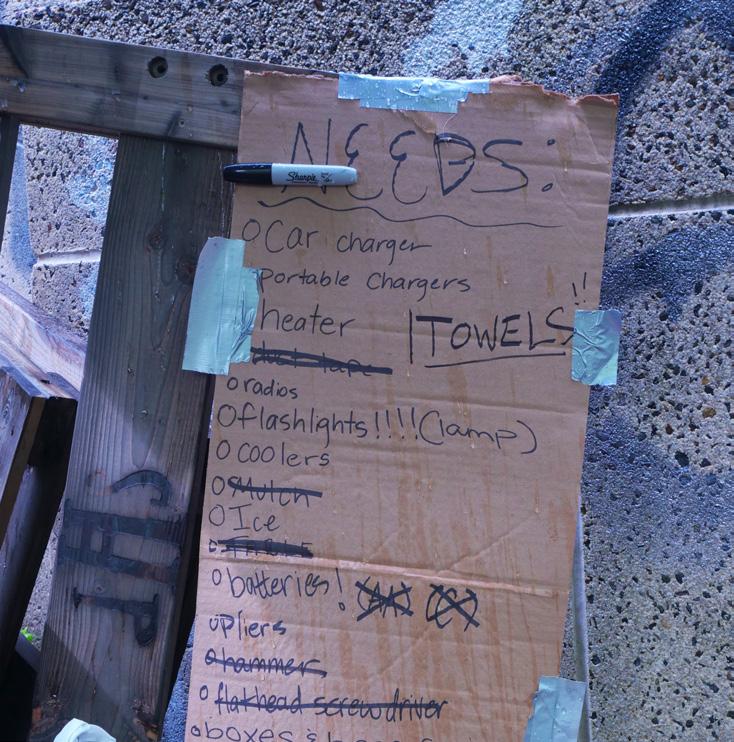 NEEDS:
Sharpie
Car charger
Portable Chargers
heater
TOWELS!!
duct tape
radios
flashlights!!!! (lamp)
coolers
Mulch
Ice
batteries! (AA) (C)
Pliers
hammer
flathead screwdriver
boxes &